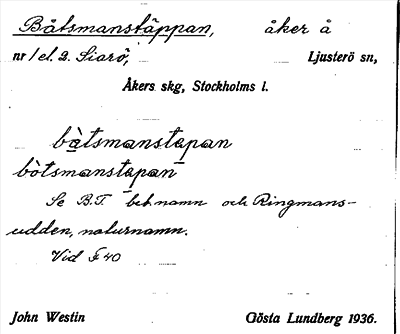 Båtsmanstäppan, åker å
nr 1 el. 2. Siarö, Ljusterö sn,
Åkers skg, Stockholms l.
bàtsmanstapan
bòtsmanstapan
Se B.T. betnamn och Ringmans-
udden, naturnamn.
Vid F 40
John Westin Gösta Lundberg 1936.